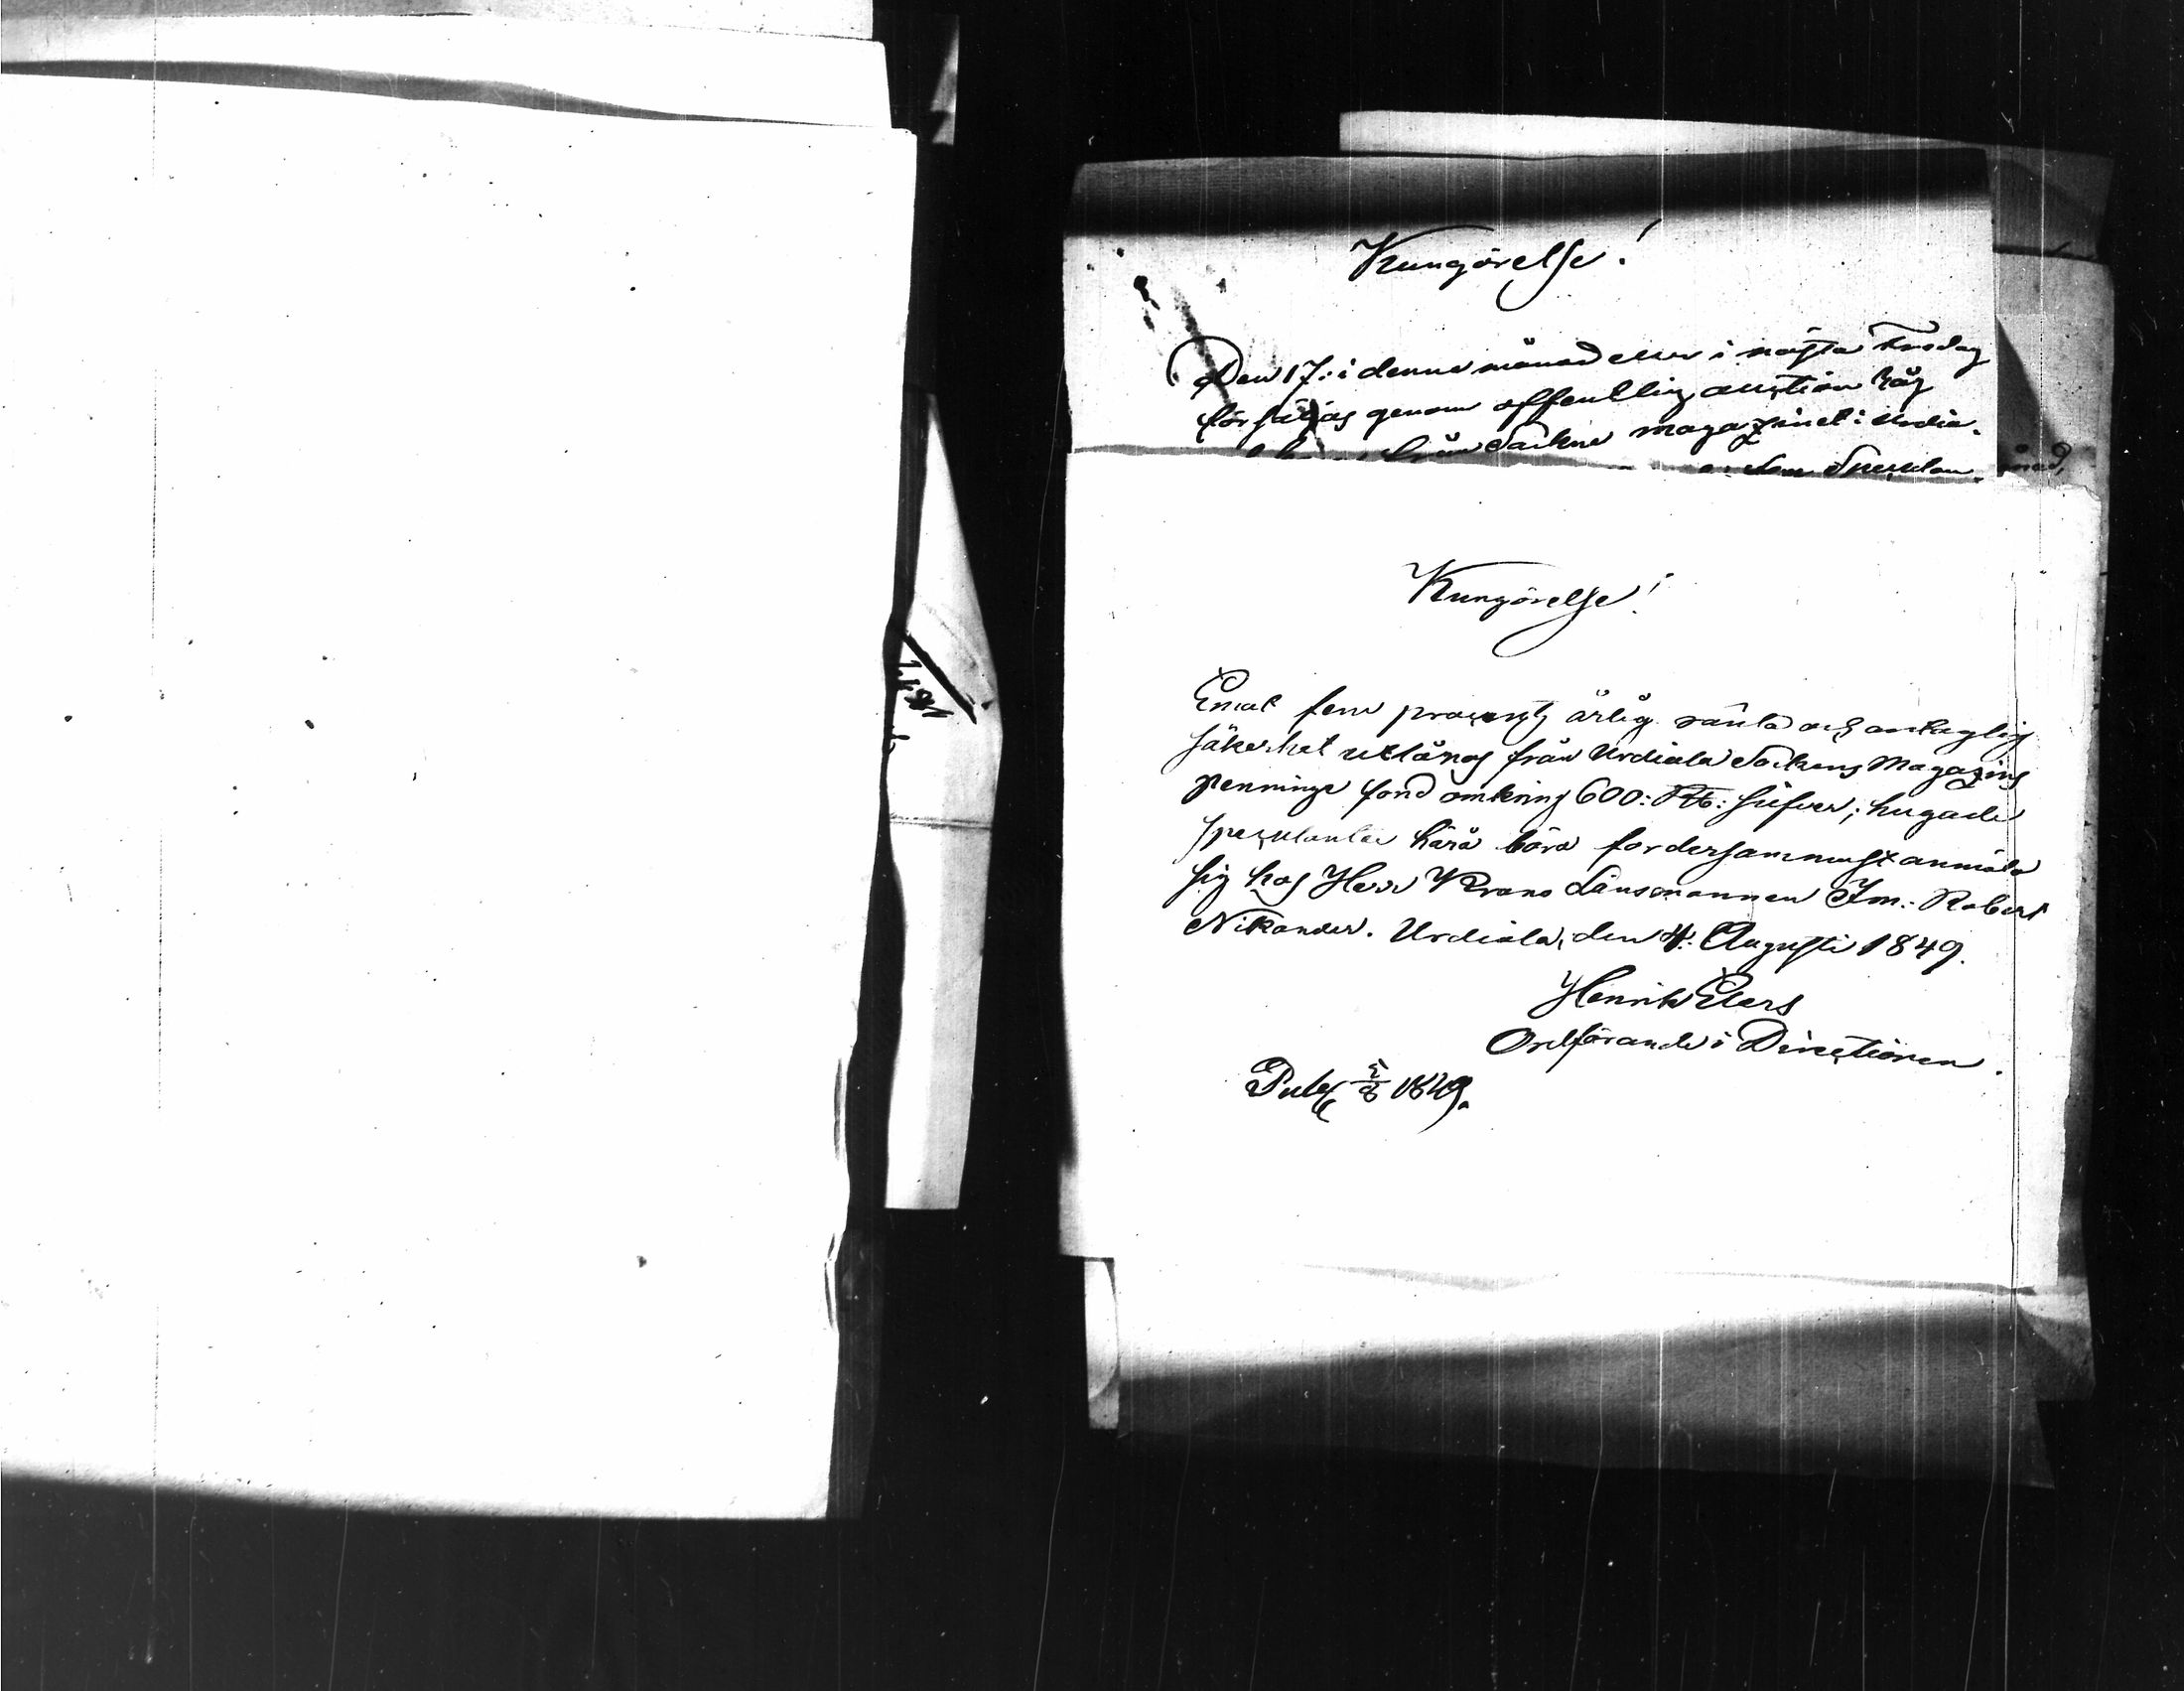 Kungörelse!
Den 17: i denna månad eller i nästa Tisdag
försäljas genom offentlig auction råg
från Sockne magazinet i Urdia-
Spekulan
månad,
Kungörelse!
Emot fem procents årlig ränta och antaglig
säkerhet utlånas från Urdiala Sockens Magazins
penninge fond omkring 600: Rb: silfver; hugade
speculanter härå böra fordersammast anmäla
sig hos Herr Krono Länsmannen Im: Robert
Nikander. Urdiala, den 4: Augusti 1849.
Henrik Elers
Ordförande i Directionen.
Publ. 5/8 1849.